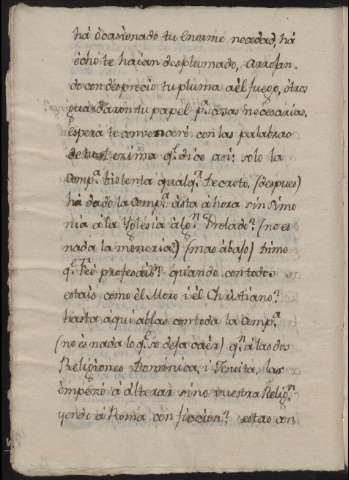 há ocasionado tu enorme necedad, há
echo te haian desplumado, arrojan-
do con desprecio tu pluma a el fuego, otros
guardaron tu papel p.ª cosas necesarias,
espera te convenceré con las palabras
de tu exima q.e dice asi: solo la
Comp.ª sustenta qualq.r decreto, (despues)
há dado la Comp.ª asta ahora sin Simo
nia á la Yglesia algn. Prelado? (no es
nada la meneria) (mas abajo) trimo
q.e feé profesais? quando con todos
estais como el Moro i el Christiano?
hasta aqui ablas con toda la Comp.ª
(no es nada lo q.e se deja caer) q.e a las dos
Religiones Dominica, i Jesuita, las
empeño á alterar sino vuestra Relig.n
yendo á Roma con ficcion? estas con